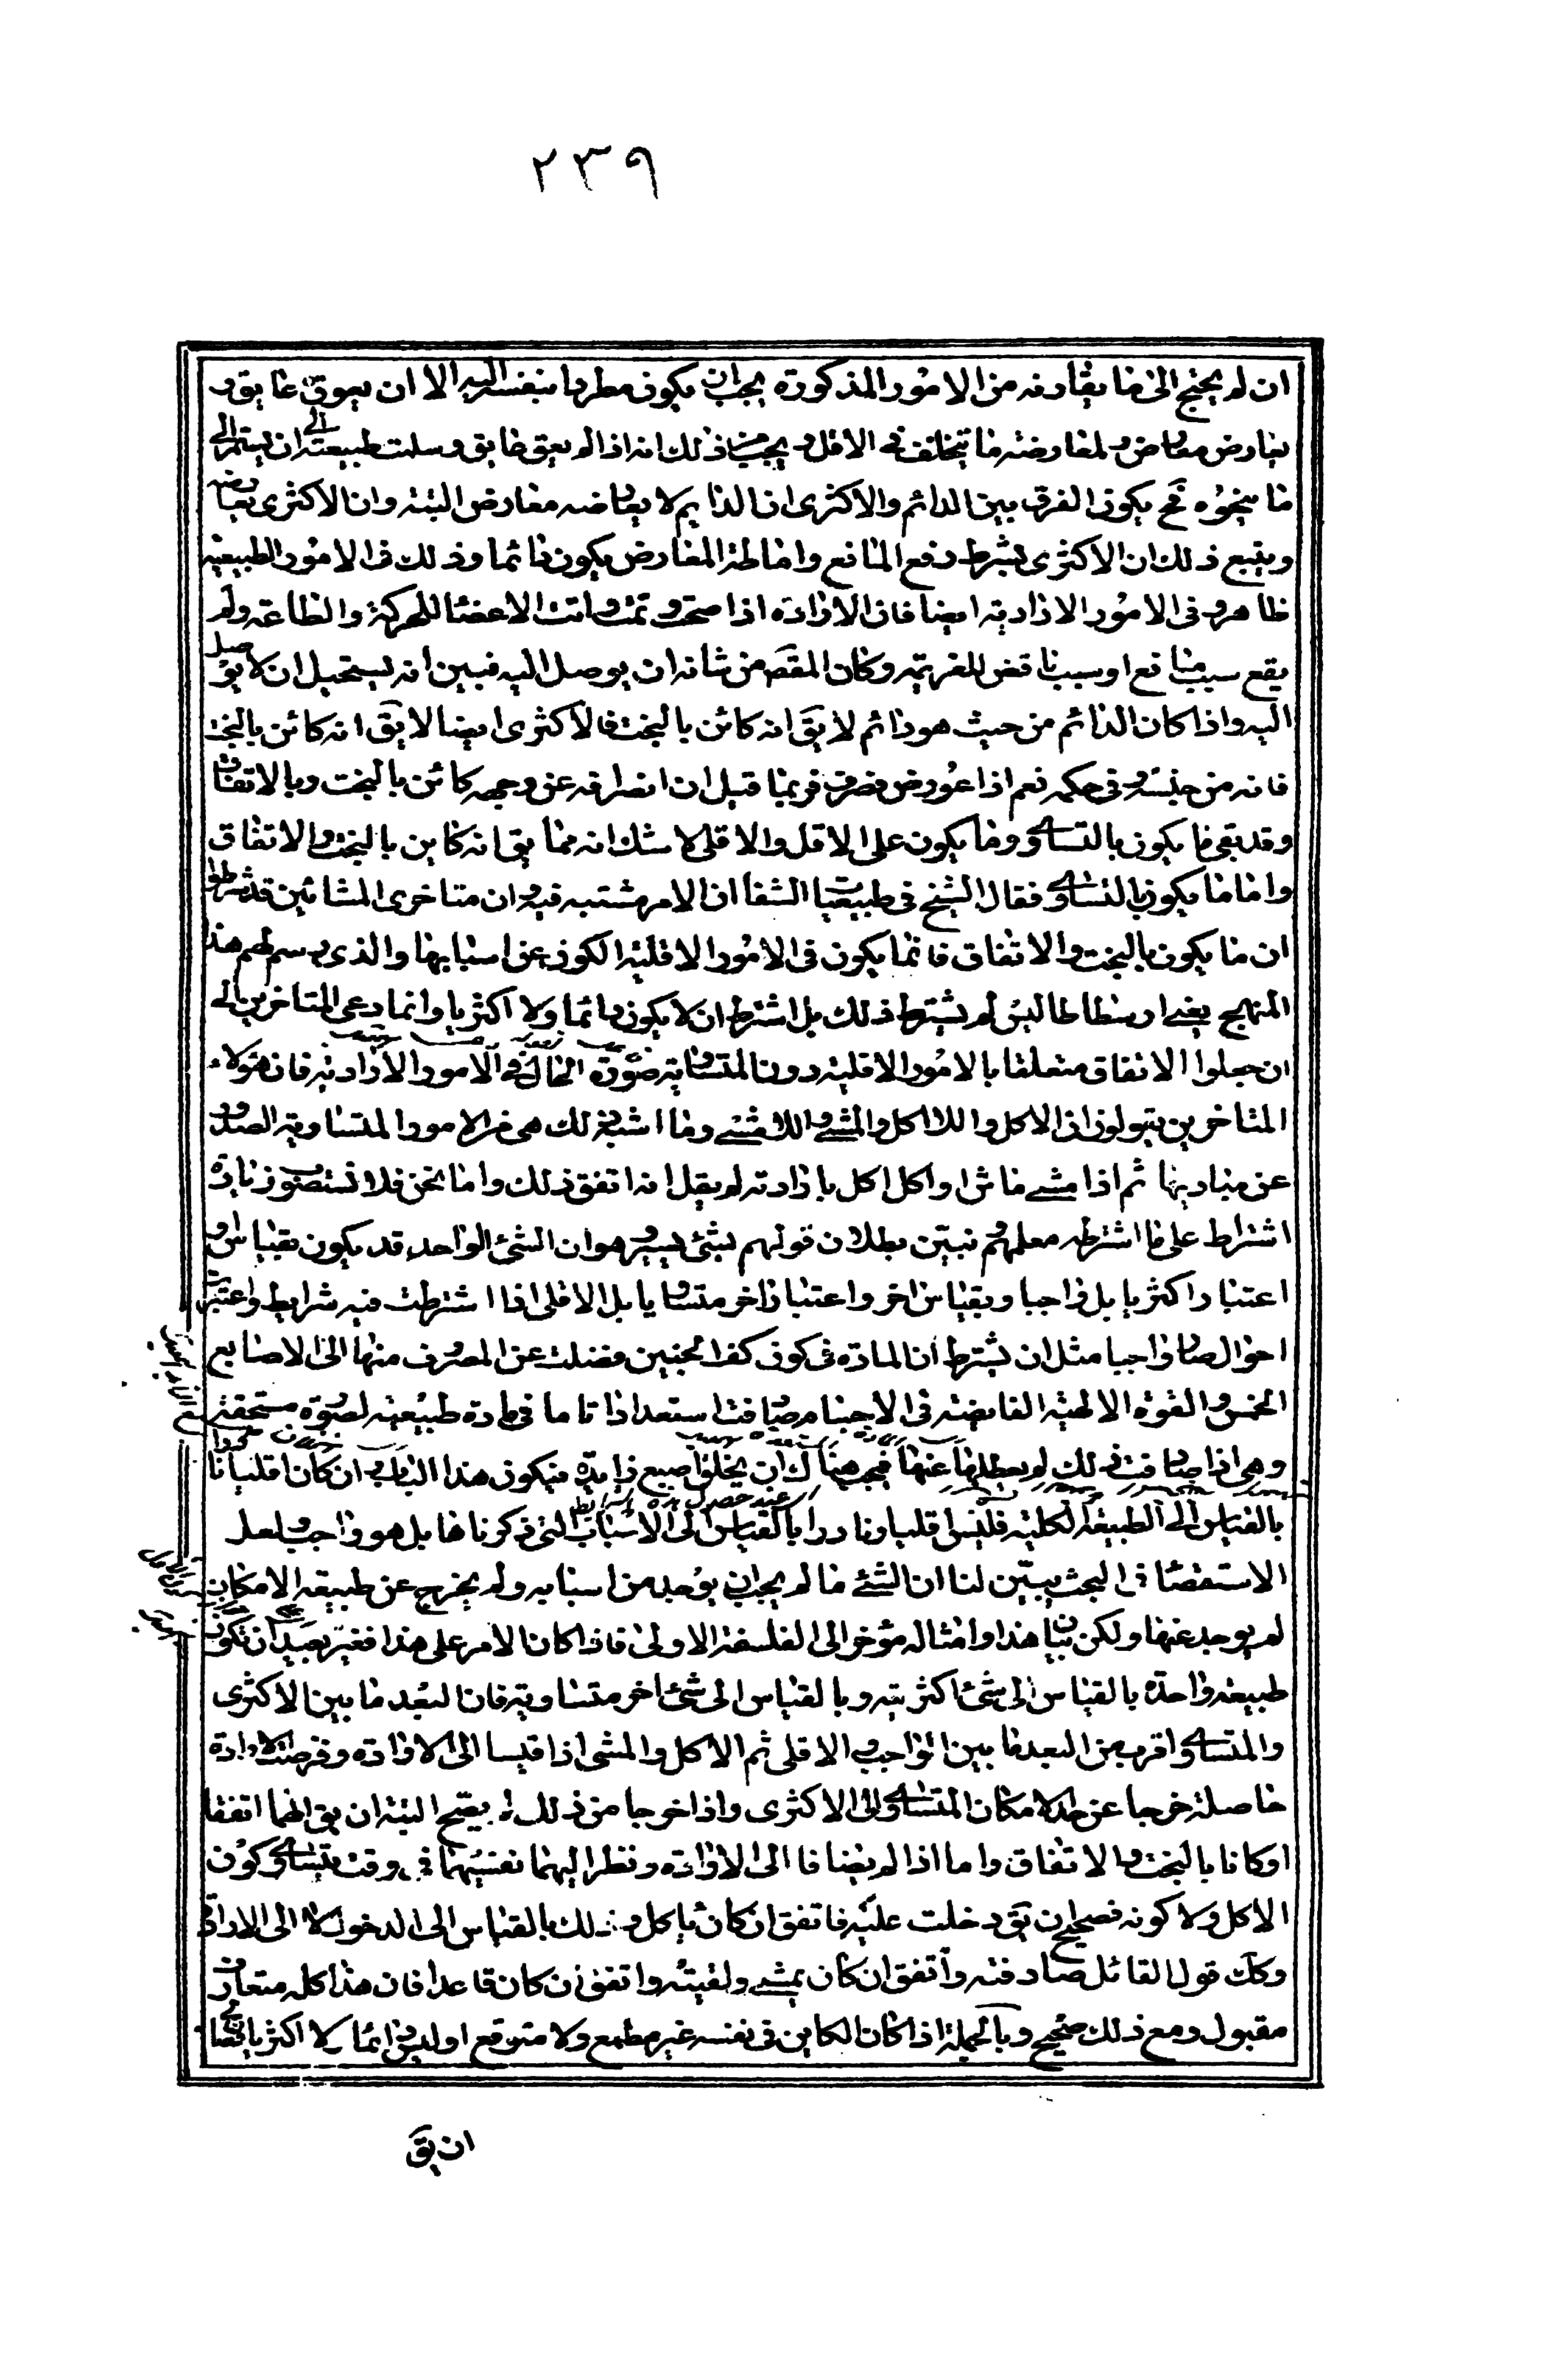 ٢٣٩
ان لم يحتج الى ما يقارنه من الامور المذكورة يجب ان يكون مطردا بنفسه اليه الا ان يعوق عايق و
يعارض معارض ولمعارضته ما يتخلف في الاقل ويجب من ذلك انه اذا لم يعق عايق وسلمت طبيعته ان يستمر الى
ما ينحوه فح يكون الفرق بين الدائم والاكثرى ان الدايم لا يعارضه معارض البتة وان الاكثرى يعارضه
ويتبع ذلك ان الاكثرى بشرط دفع المانع واماطة المعارض يكون دائما وذلك في الامور الطبيعية
ظاهر وفى الامور الارادية ايضا فان الارادة اذا صحت وتمت وواتت الاعضا للحركة والطاعة ولم
يقع سبب مانع او سبب ناقض للعزيمة وكان المقصَ من شانه ان يوصل اليه فبين انه يستحيل ان لا يوصل
اليه واذا كان الدائم من حيث هو دائم لا يقَ انه كائن بالبخت فالاكثرى ايضا لا يقَ انه كائن بالبخت
فانه من جنسه وفى حكمه نعم اذا عورض فصرف فربما قيل ان انصرافه عن وجهه كائن بالبخت وبالاتفاق
وقد بقى ما يكون بالتساوى وما يكون على الاقل والاقلى لا شك انه مما يق انه كاين بالبخت والاتفاق
واما ما يكون بالتساوى فقال الشيخ فى طبيعيات الشفا ان الامر مشتبه فيه وان متاخرى المشائين قد شرطوا
ان ما يكون بالبخت والاتفاق فانما يكون فى الامور الاقلية الكون عن اسبابها والذى رسم لهم هذا
المنهج يعنى ارسطاطاليس لم يشترط ذلك بل اشترط ان لا يكون دائما ولا اكثريا وانما دعى المتاخرين الى
ان جعلوا الاتفاق متعلقا بالامور الاقلية دون المتساوية صورة الحال فى الامور الارادية فان هؤلاء
المتاخرين يقولون ان الاكل واللااكل والمشى واللامشى وما اشبه ذلك هى من الامور المتساوية الصدور
عن مباديها ثم اذا مشى ماش او اكل اكل بارادته لم يقل انه اتفق ذلك واما نحن فلا نستصوب زيادة
اشتراط على ما اشترطه معلمهم ونبيّن بطلان قولهم بشئ يسير وهو ان الشئ الواحد قد يكون بقياس و
اعتبار اكثريا بل واجبا وبقياس اخر واعتبار اخر متساويا بل الاقلى اذا اشترطت فيه شرايط واعتبرت
احوال صار واجبا مثل ان يشترط ان المادة فى كون كف الجنين فضلت عن المصرف منها الى الاصابع
الخمس والقوة الالهية الفايضة فى الاجسام صادفت استعدادا تاما فى مادة طبيعية لصورة مستحقة
وهى اذا صادفت ذلك لم يعطلها عنها فيجب هناك ان يخلق اصبع زايدة فيكون هذا الباب وان كان اقليا نادرا
بالقياس الى الطبيعة الكلية فليس اقليا ونادرا بالقياس الى الاسباب التى ذكرناها بل هو واجب ولعل
عند حصول هذه الشرايط
الاستقصا فى البحث يبيّن لنا ان الشئ ما لم يجب ان يوجد من اسبابه ولم يخرج عن طبيعة الامكان
لم يوجد عنها ولكن بيان هذا وامثاله مؤخر الى الفلسفة الاولى فاذا كان الامر على هذا فغير بعيد ان تكون
طبيعة واحدة بالقياس الى شئ اكثرية وبالقياس الى شئ اخر متساوية فان البعد ما بين الاكثرى
والمتساوى اقرب من البعد ما بين الواجب والاقلى ثم الاكل والمشى اذا قيسا الى الارادة وفرضت الارادة
حاصلة خرجا عن حد الامكان المتساوى الى الاكثرى واذا خرجا من ذلك لم يصح البتة ان يق انهما اتفقا
او كانا بالبخت والاتفاق واما اذا لم يضافا الى الارادة ونظر اليهما نفسيهما فى وقت يتساوى كون
الاكل ولا كونه فصحيح ان يقَ دخلت عليه فاتفق ان كان ياكل وذلك بالقياس الى الدخول لا الى الارادة
وكك قول القائل صادفته واتفق ان كان يمشى ولقيته واتفق ان كان قاعدا فان هذا كله متعارف
مقبول ومع ذلك صحيح وبالجملة اذا كان الكاين فى نفسه غير مطمع ولا متوقع اوليس دائما ولا اكثريا يصلح
ان يقَ